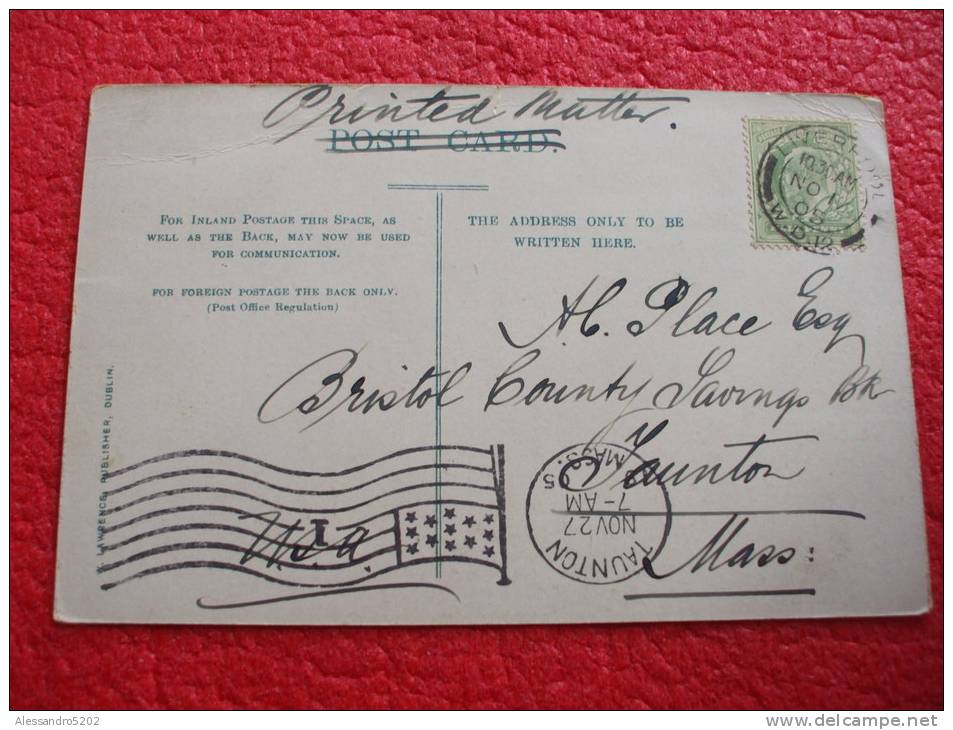 Printed Matter.
POST CARD.
FOR INLAND POSTAGE THIS SPACE, AS
WELL AS THE BACK, MAY NOW BE USED
FOR COMMUNICATION.
FOR FOREIGN POSTAGE THE BACK ONLY.
(Post Office Regulation)
THE ADDRESS ONLY TO BE
WRITTEN HERE.
LIVERPOOL
10.30 AM
NO 17
05
W.D.12
Place Esq
Bristol County Savings Bk
Taunton
Mass:
U.S.A.
1
TAUNTON
NOV 27
7-AM
MASS.
LAWRENCE, PUBLISHER, DUBLIN.
Alessandro5202
delcampe.net